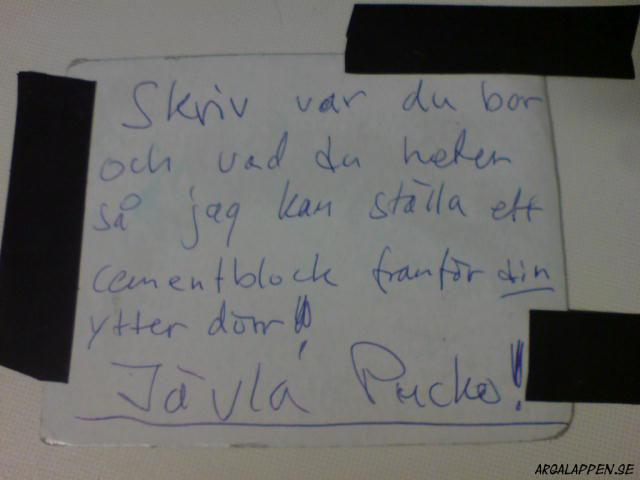 Skriv var du bor
och vad du heter
så jag kan ställa ett
cementblock framför din
ytter dörr!!
Jävla Pucko!!
ARGALAPPEN.SE